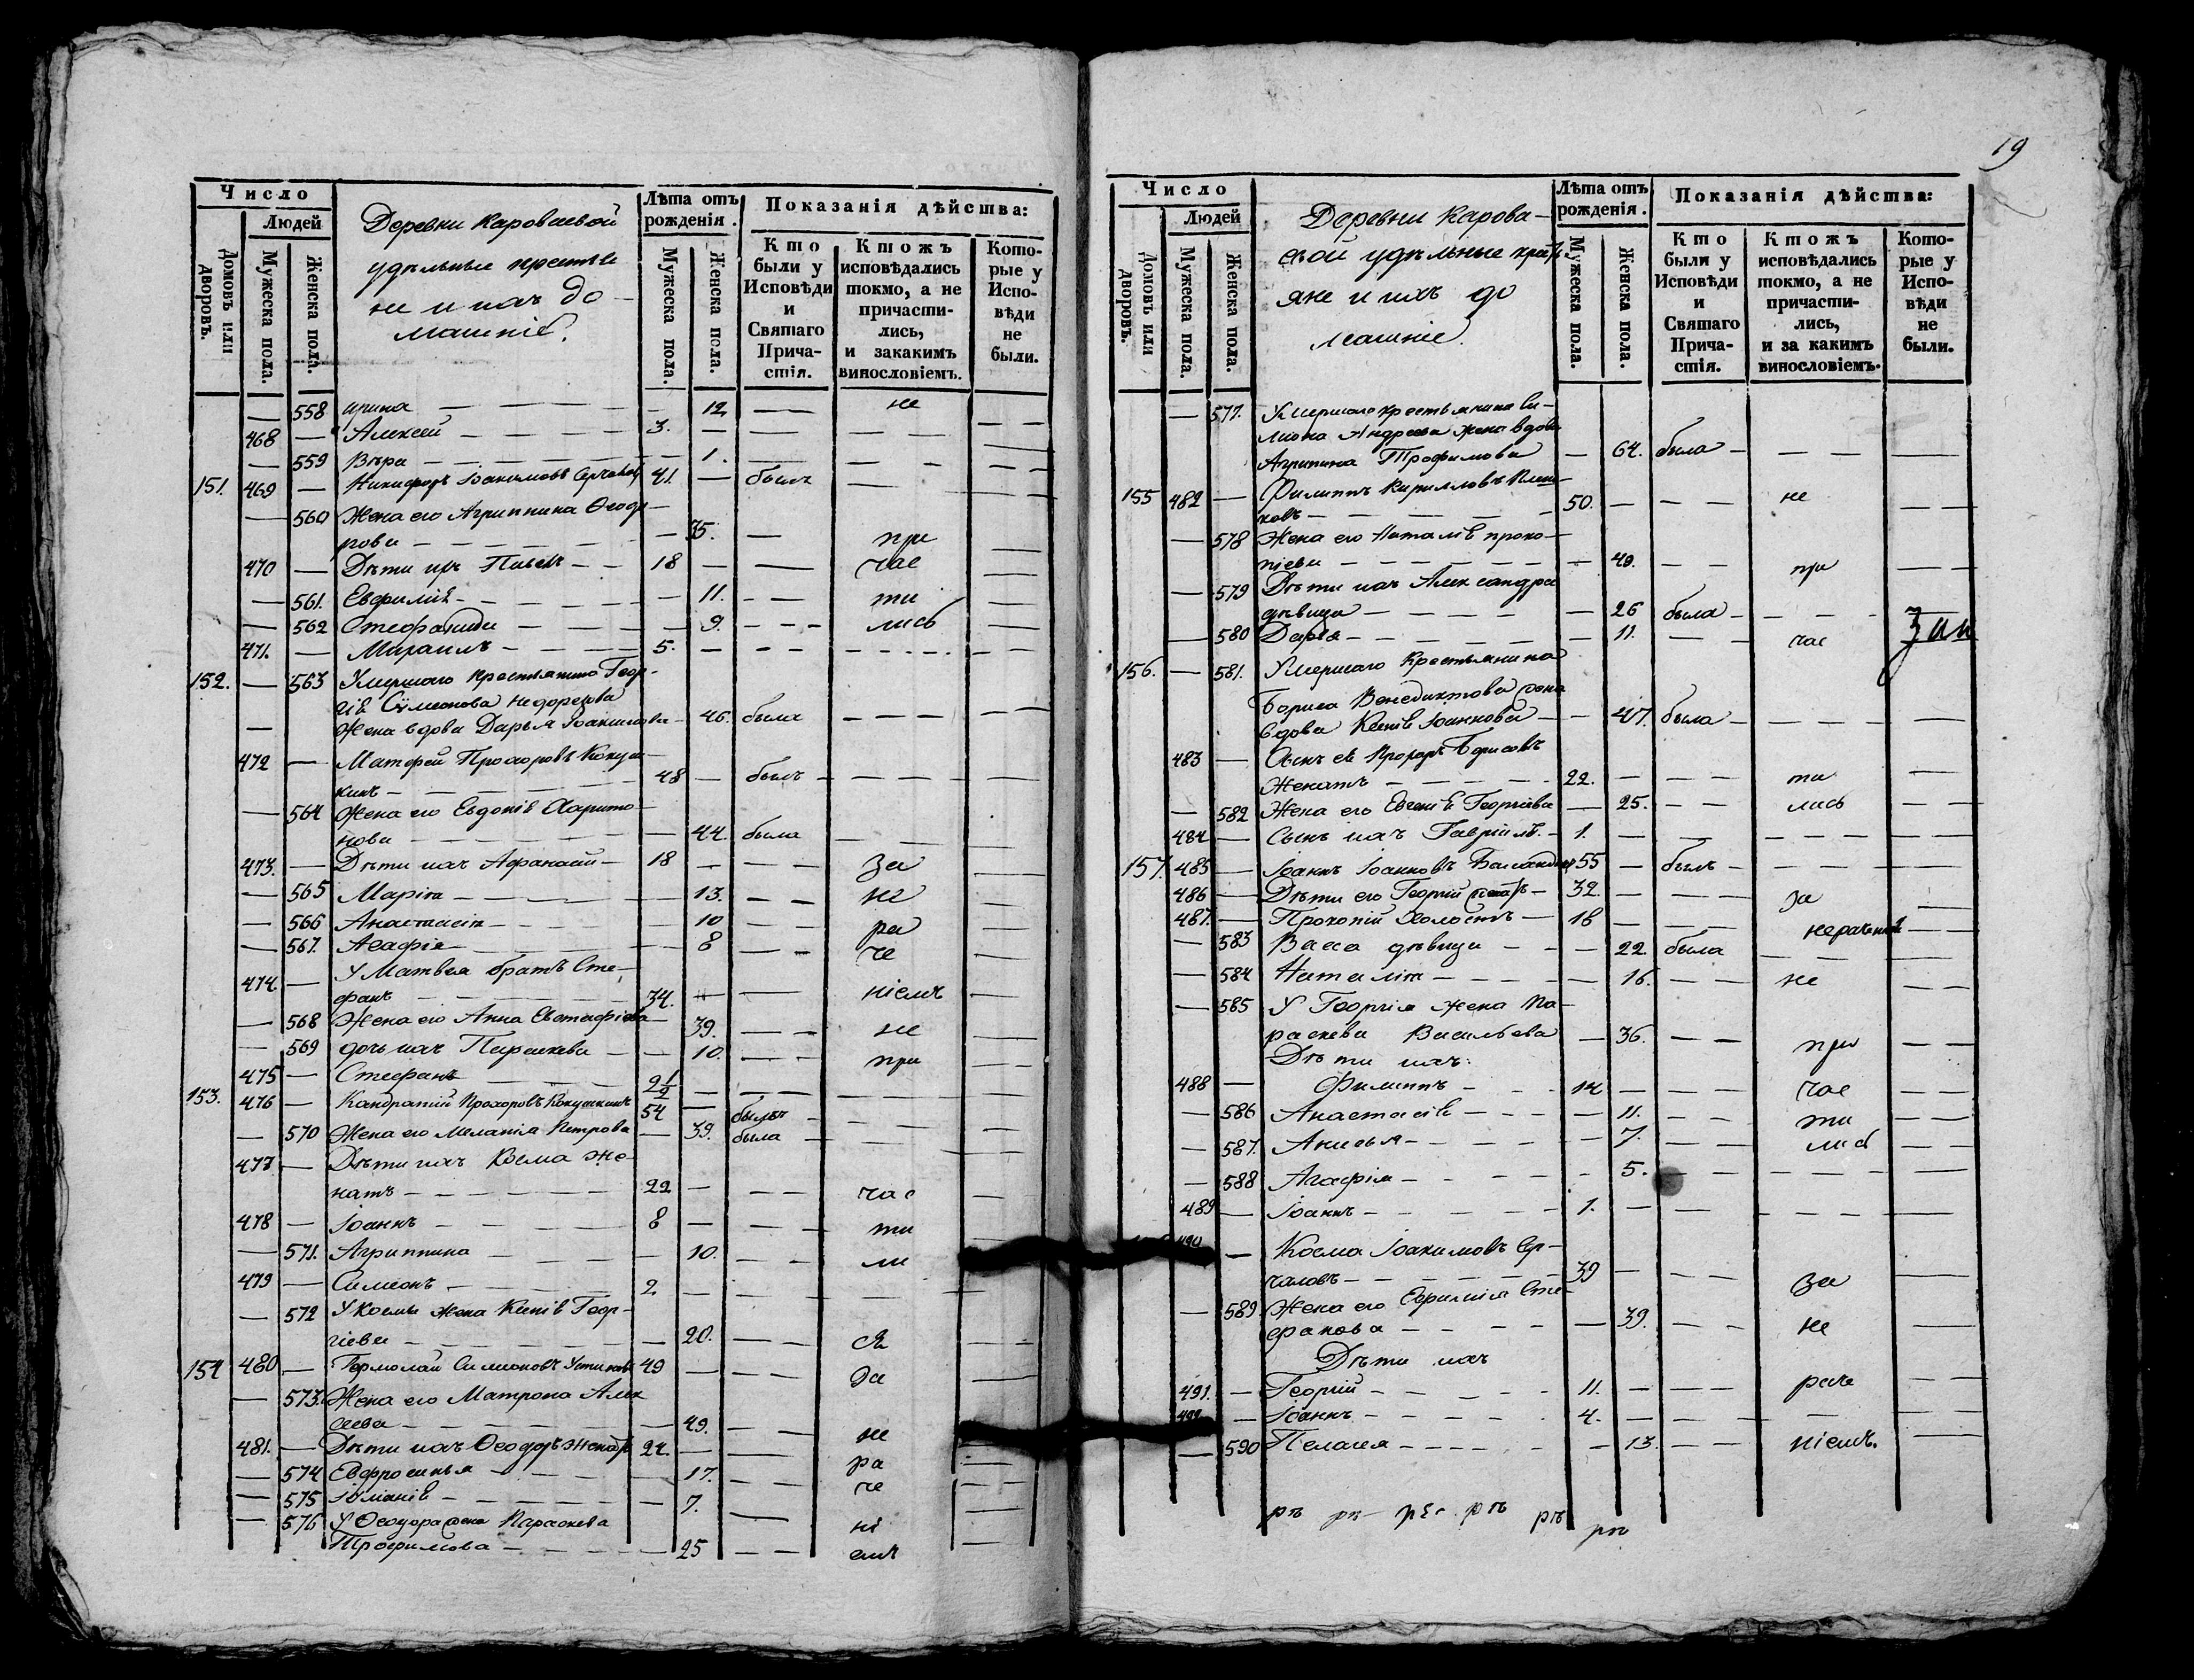 Число
Людей
Домовъ или дворовъ.
Мужеска пола.
Женска пола.
Деревни Караваевой
удѣльные крестья
не и ихъ до-
машніе.
Лѣта отъ рожденія.
Мужеска пола.
Женска пола.
Показанія дѣйства:
Кто были у Исповѣди и Святаго Причастія.
Ктожъ исповѣдались токмо, а не причасти-лись, и закакимъ винословіемъ.
Кото-рые у Испо-вѣди не были.
— 558 Ирина — — — — 12 — не —
468 — Алексей — — — 3. — — — —
— 559 Вѣра — — — — 1. — — —
151. 469 — Никифоръ Іоакимовъ 41. — былъ — —
— 560 Жена его Агриппина Ѳеодо-
рова — — — — 35. — при —
470 — Дѣти ихъ Павелъ — — 18 — — час —
— 561. Евфимія — — — — 11. — — ти —
— 562 Стефанида — — — 9. — — — лись —
471. — Михаилъ — — — 5. — — — —
152. — 563 Умершаго крестьянина Геор-
гія Симеонова
— жена вдова Дарья Іоакимова — 46. была — — — —
472 — Матфей Прохоровъ Кокуш-
кинъ — — — 48 — былъ — — —
— 564 Жена его Евдокія Харито-
нова — — — — 44. была — —
473. — Дѣти ихъ Афанасій — 18 — — — за —
— 565 Марія — — — — 13. — — не —
— 566 Анастасія — — — 10 — — ра —
— 567. Агафія — — — 8 — — че —
474. — У Матвея братъ Сте-
фанъ — — — 34. — — ніемъ —
— 568 Жена его Анна Евстафіева — 39. — — не —
— 569 дочь ихъ Параскева — — 10. — — при —
475 — Стефанъ — — 2 1/2 — — — —
153. 476 — Кандратій Прохоровъ Кокушкинъ 54 — былъ — —
— 570 Жена его Меланія Петрова — 39. была — —
477 — Дѣти ихъ Косма же-
натъ — — — — 22 — — — час —
478 — Іоаннъ — — — 8 — — — ти —
— 571. Агриппина — — — 10. — — ли —
479 — Симеонъ — — — 2 — — — —
— 572 У Космы жена Ксенія Геор-
гіева — — — 20. — — ся —
154 480 — Гермолай Симеоновъ Устиновъ 49 — — за —
— 573. Жена его Матрона Алек
сеева — — — — 49. — — не —
481. — Дѣти ихъ Ѳеодоръ женатъ 24. — — — ра —
— 574 Евфросинья — — — 17. — — че —
— 575 Іуліанія — — — — 7. — — —
— 576 У Ѳеодора жена Параскева ні —
Трофимова — — — — 25 — — емъ
19
Число
Людей
Домовъ или дворовъ.
Мужеска пола.
Женска пола.
Деревни Карова-
евой удѣльные крестъ-
яне и ихъ до
машніе.
Лѣта отъ рожденія.
Мужеска пола.
Женска пола.
Показанія дѣйства:
Кто были у Исповѣди и Святаго Прича-стія.
Ктожъ исповѣдались токмо, а не причасти-лись, и за какимъ винословіемъ.
Кото-рые у Испо-вѣди не были.
— 577. Умершаго крестьянина Си-
миона Андреева жена вдова
Агрипина Трофимова — 64. была — — — —
155 482 — Филиппъ Кирилловъ
ковъ — — — 50. — — — не —
— 578 Жена его Наталія Проко-
піева — — — — 49. — — при —
— 579 Дѣти ихъ Александра
дѣвица — — — — 26 была — — —
— 580 Дарья — — — — 11. — — час
156. — 581. Умершаго крестьянина
Бориса Венедиктова жена
вдова Ксенія Іоаннова — — 47. была — — — —
483 — Сынъ ея Прохоръ Борисовъ
женатъ — — — 22. — — — ти —
— 582 Жена его Евгенія Георгіева — 25. — — лись —
484 — Сынъ ихъ Гавріилъ. — 1. — — — —
157. 485 — Іоаннъ Іоанновъ Баландинъ 55 — былъ — —
486 — Дѣти его Георгій женатъ — 32. — — — за —
487. — Прокопій холостъ — 18 — — —
— 583 Васса дѣвица — — — 22. была нераченіе —
— 584 Наталія — — — 16. — — не —
— 585 У Георгія жена Па-
раскева Васильева — 36. — — при —
Дѣти ихъ:
488 — Филиппъ — — 14 — — час —
— 586 Анастасія — — — 11. — — ти —
— 587. Анисья — — — — 7. — — лись —
— 588 Агафія — — — — 5. — — — —
489 — Іоаннъ — — — 1. — — — —
490 — Косма Іоакимовъ Ср-
чаловъ — — — 39 — — — за —
— 589 Жена его Евфимія Сте-
фанова — — — — 39. — — не —
Дѣти ихъ
491. — Георгій — — — 11. — — — раче —
492 — Іоаннъ — — — 4. — — — —
— 590 Пелагея — — — — 13. — — ніемъ. —